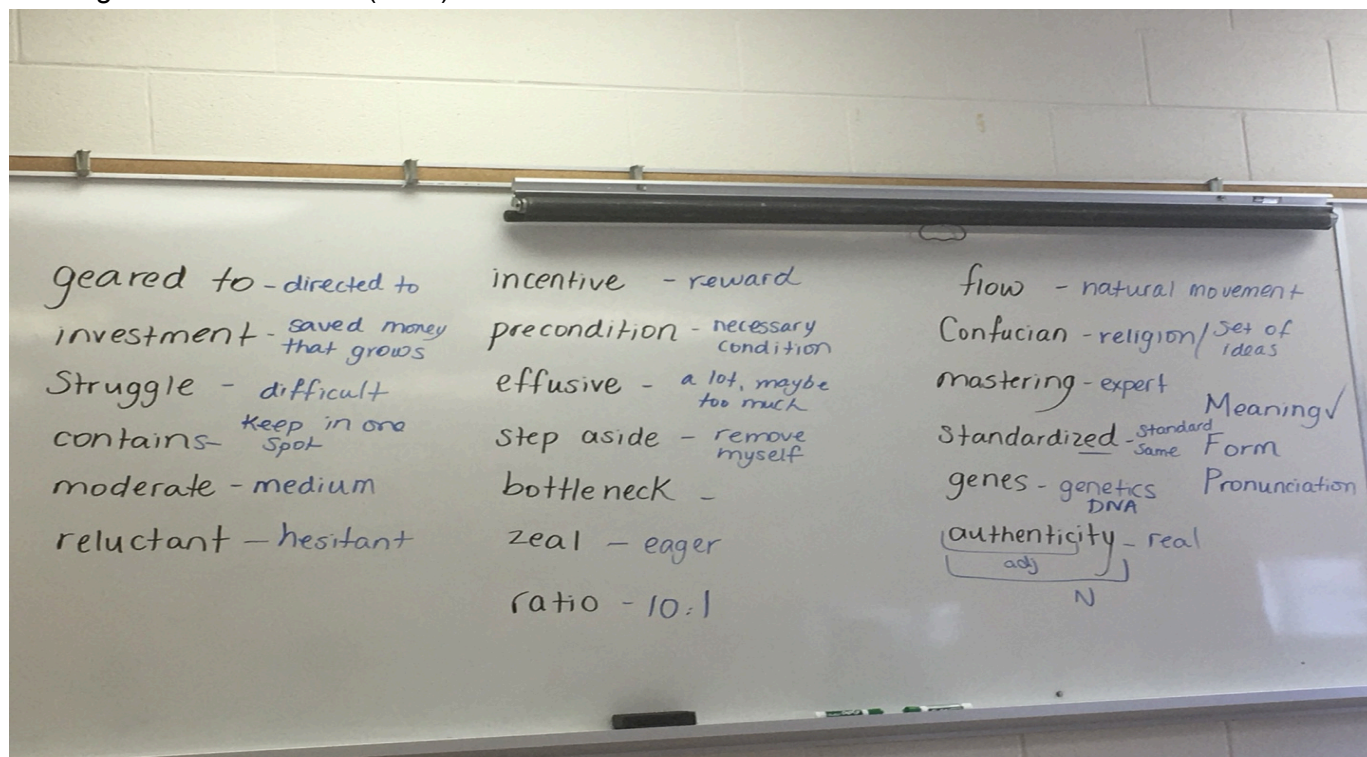 geared to - directed to
investment - saved money that grows
Struggle - difficult
contains - Keep in one spot
moderate - medium
reluctant - hesitant
incentive - reward
precondition - necessary condition
effusive - a lot, maybe too much
step aside - remove myself
bottleneck -
zeal - eager
ratio - 10:1
flow - natural movement
Confucian - religion/set of ideas
mastering - expert
Standardized - standard same
genes - genetics DNA
authenticity - real
adj
N
Meaning ✓
Form
Pronunciation